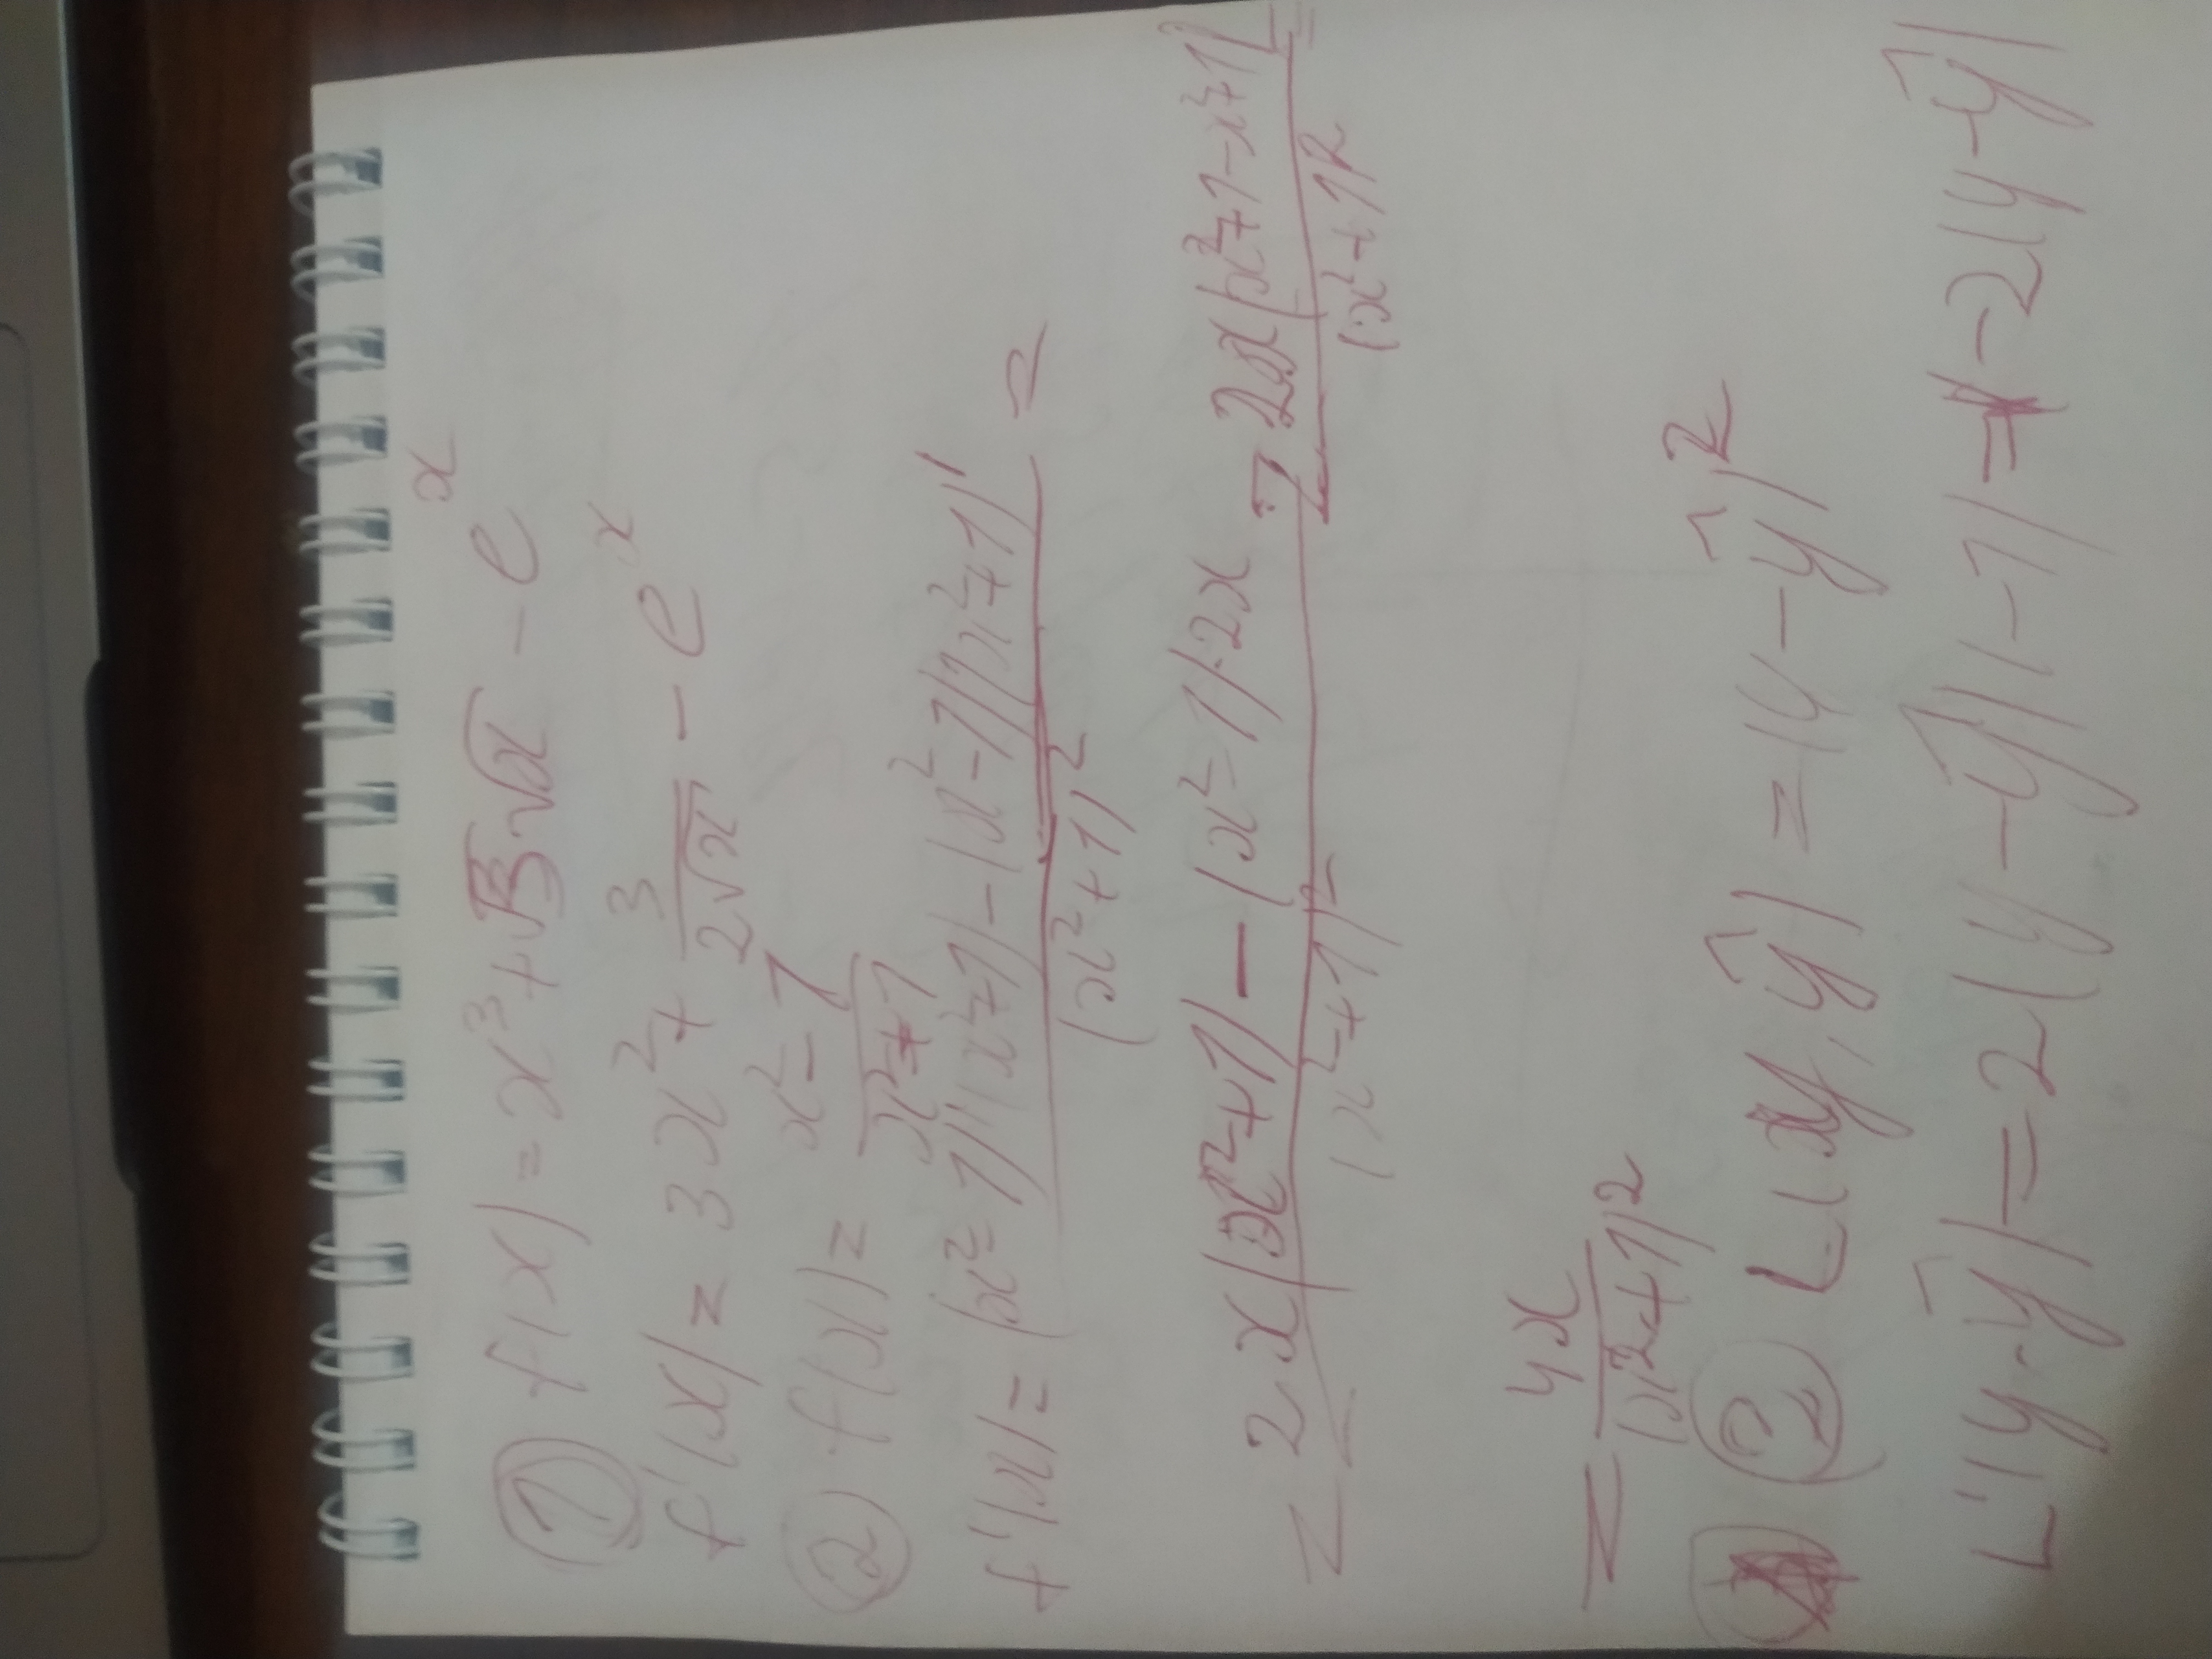 ① f(x) = x³ + √3·√x − eˣ
f'(x) = 3x² + 3/(2√x) − eˣ
② f(x) = (x² − 1)/(x² + 1)
f'(x) = ((x² − 1)'(x² + 1) − (x² − 1)(x² + 1)')/(x² + 1)² =
= (2x(x² + 1) − (x² − 1)·2x)/(x² + 1)² = (2x(x² + 1 − x² + 1))/(x² + 1)² =
= 4x/(x² + 1)²
② L(y, ŷ) = (y − ŷ)²
L'(y − ŷ) = 2(y − ŷ)(−1) = −2(y − ŷ)